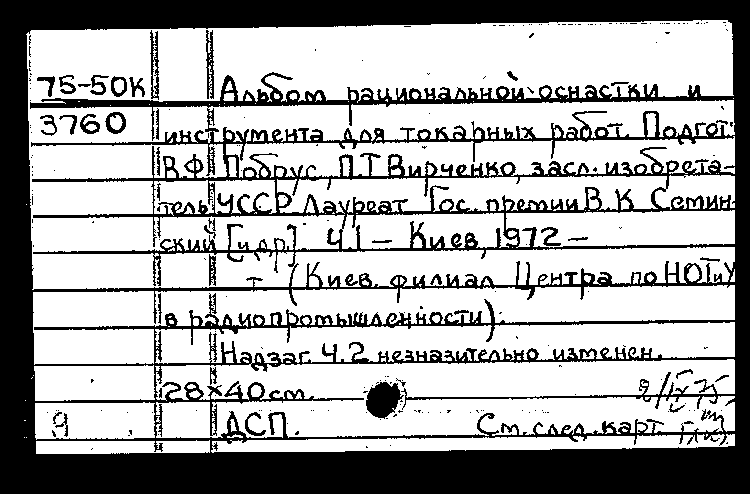 75-50К Альбом рациональной оснастки и
3760 инструмента для токарных работ. Подгот.
В.Ф. Побрус, П.Т Вирченко, засл. изобрета-
тель УССР Лауреат Гос. премии В.К Семин-
ский [и др]. Ч.1 — Киев, 1972 —
т. (Киев. филиал Центра по НОТиУ
в радиопромышленности).
Надзаг. Ч.2 незназительно изменен.
28×40см. 9/IX 75
9 ДСП. См. след. карт.